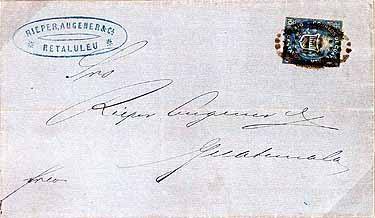 RIEPER, AUGENER & Co
RETALULEU
Srs
Rieper Augener &
Guatemala